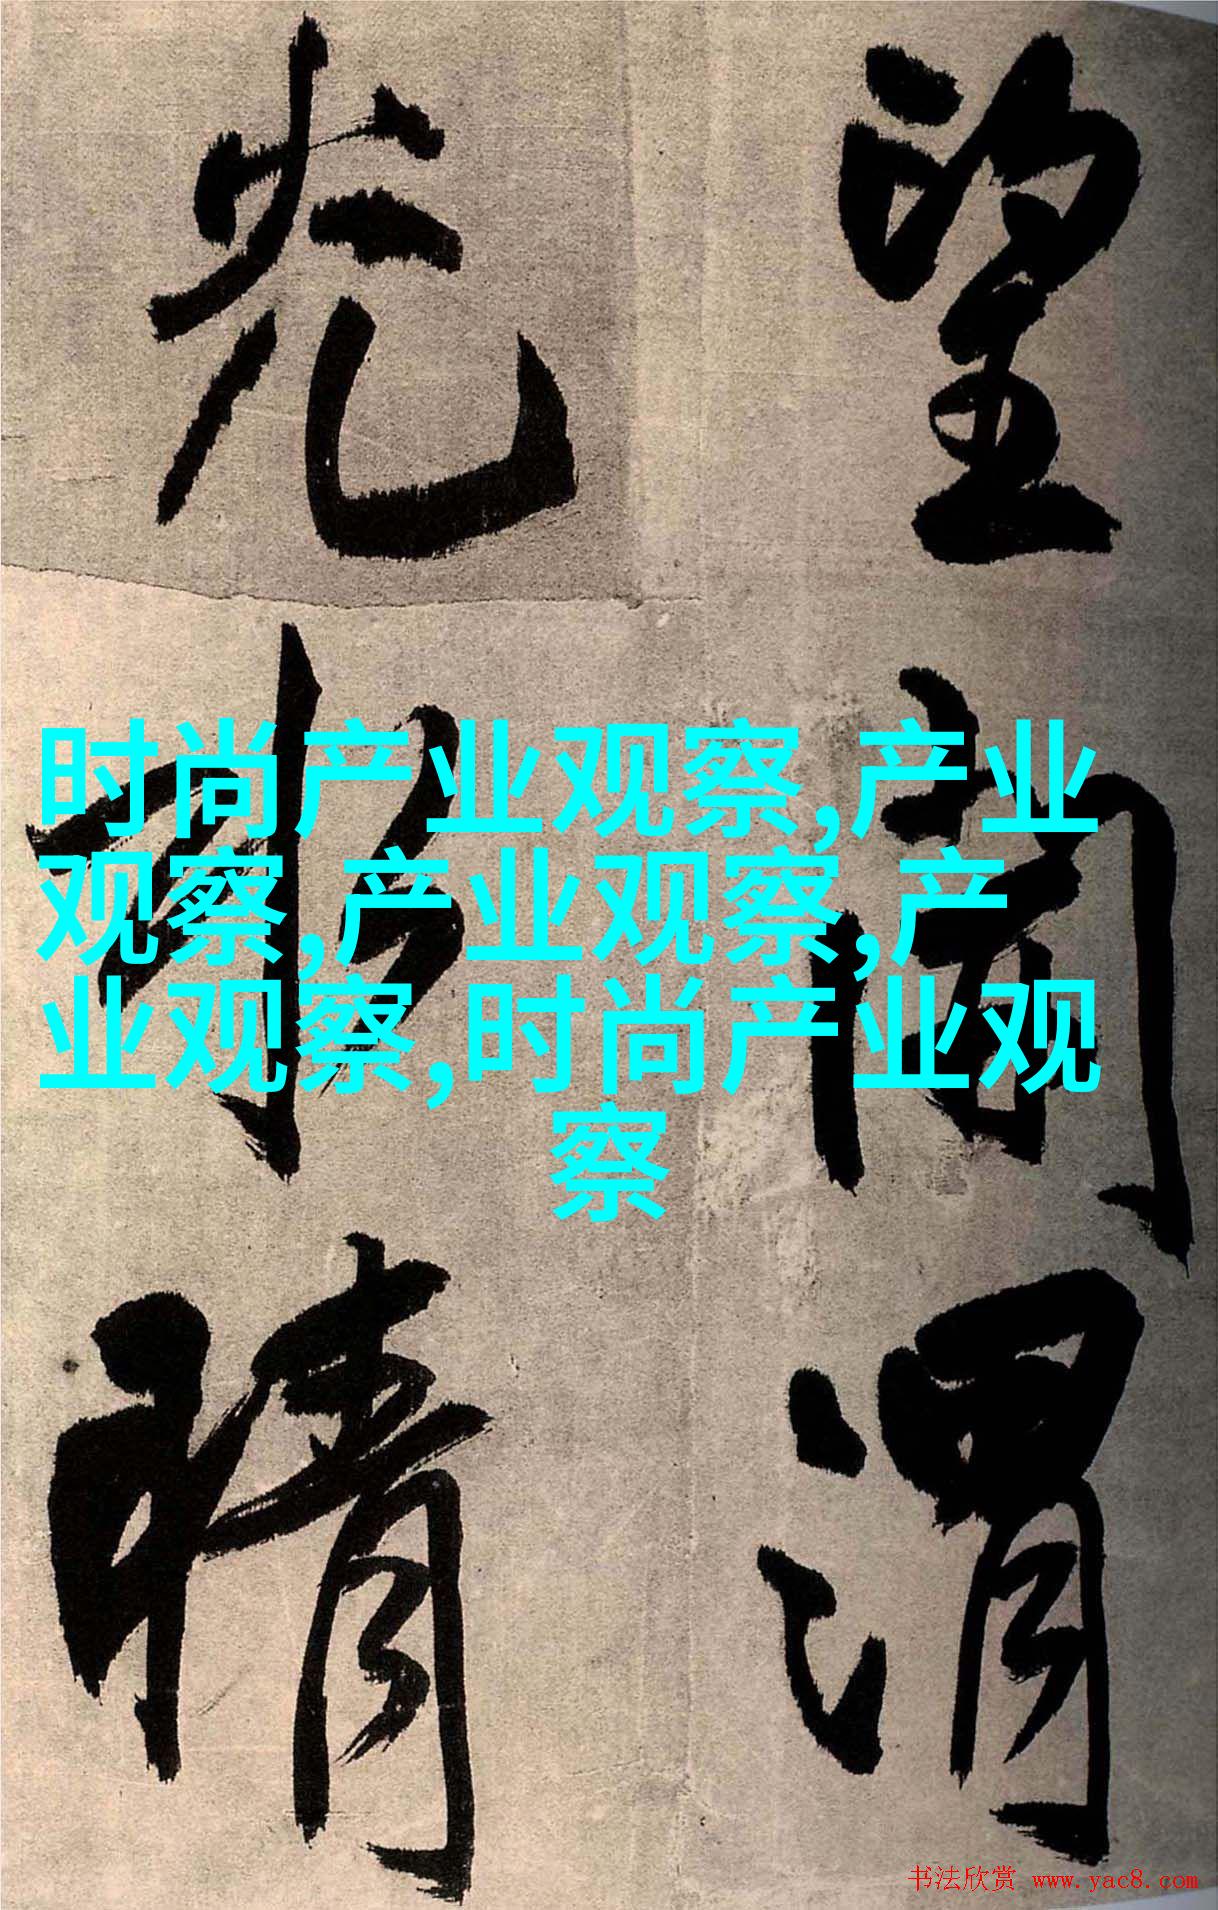 望渭
光水晴
时尚产业观察,产业
观察,产业观察,产
业观察,时尚产业观
察
书法欣赏 www.yac8.com